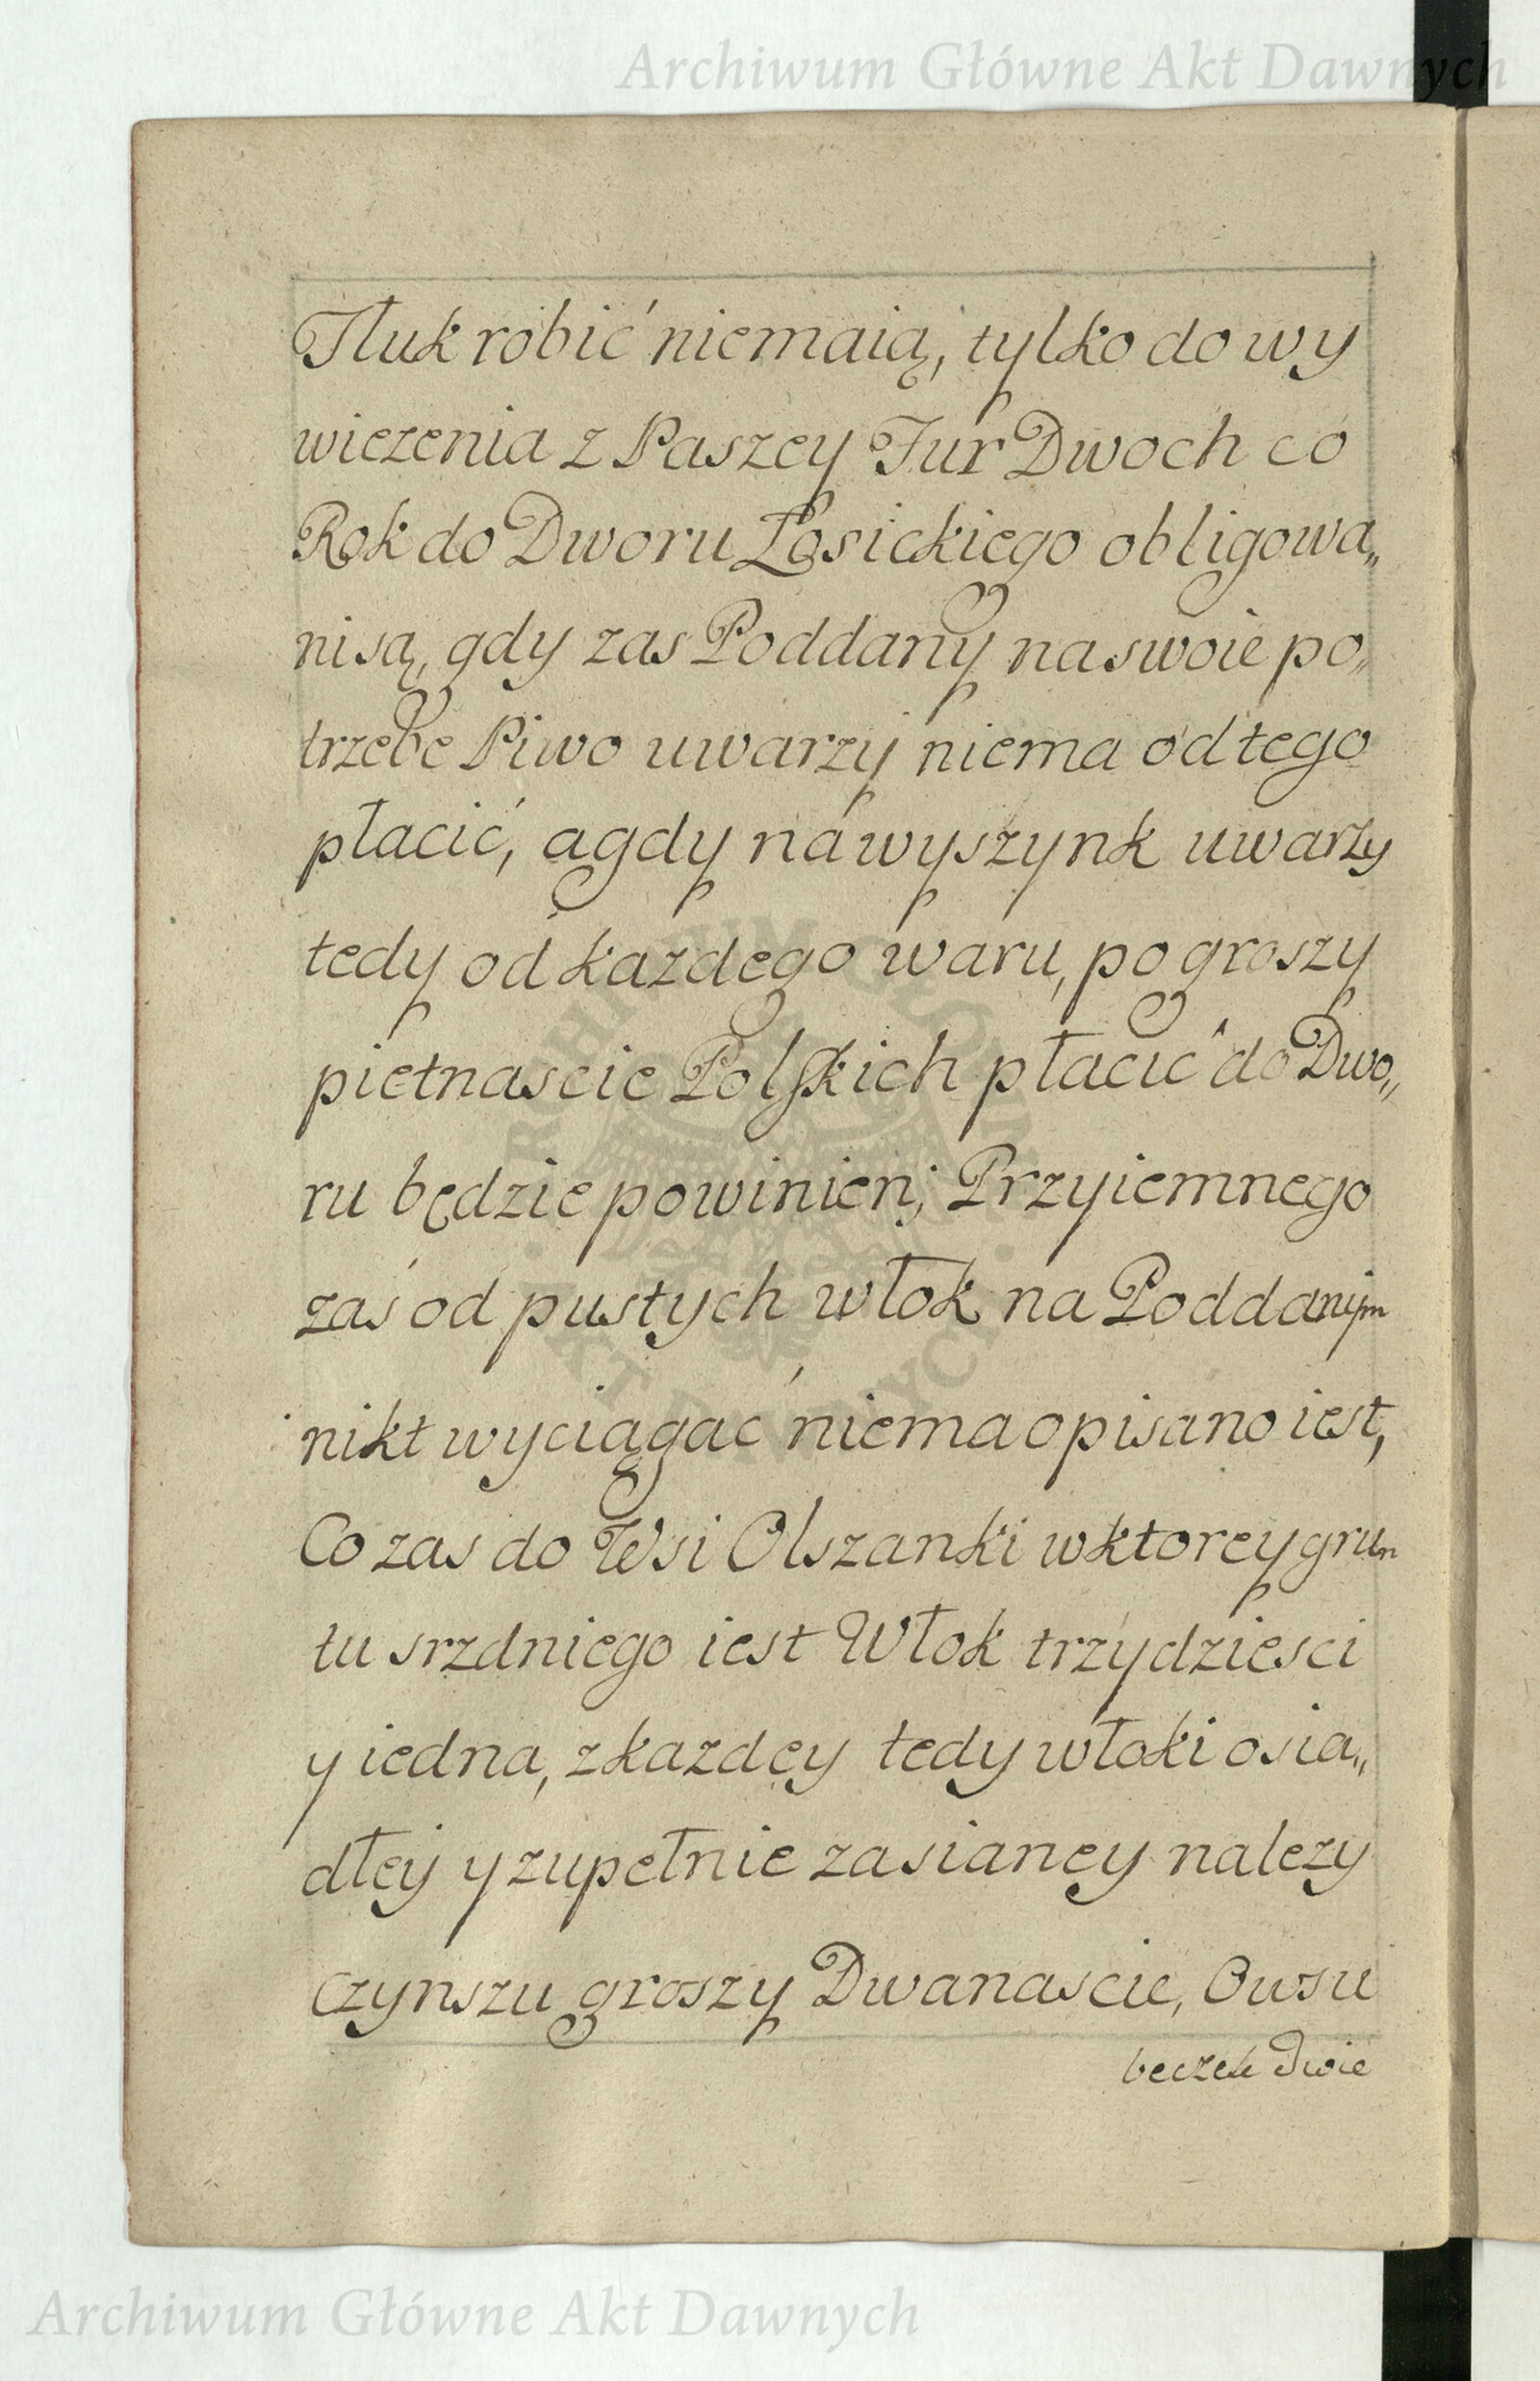 Archiwum Główne Akt Dawnych
Tłuk robić niemaią, tylko do wy
wiezenia z Paszey Fur Dwoch co
Rok do Dworu Łosickiego obligowa„
ni są, gdy zas Poddany na swoie po„
trzebe Piwo uwarzy niema od tego
płacić, a gdy na wyszynk uwarzy
tedy od kazdego waru, po groszy
pietnascie Polskich płacić do Dwo„
ru będzie powinien; Przyiemnego
zaś od pustych włok na Poddanym
nikt wyciągać niema opisano iest,
Co zas do Wsi Olszanki w ktorey grun
tu srzdniego iest Włok trzydziesci
y iedna, z kazdey tedy włoki osia„
dłey y zupełnie zasianey nalezy
czynszu groszy Dwanascie, Owsu
beczek Dwie
Archiwum Główne Akt Dawnych